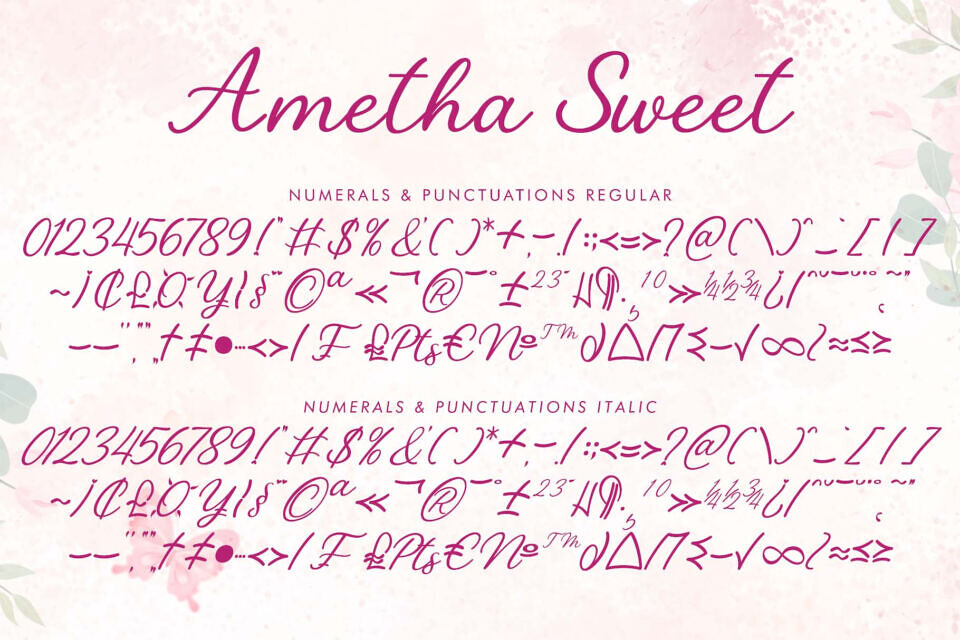 Ametha Sweet
NUMERALS & PUNCTUATIONS REGULAR
0123456789!"#$%&'()*+,-./:;<=>?@(\)^_`[/]
~¡¢£¤¥¦§¨©ª«¬®¯°±²³´µ¶·¸¹⁰»¼½¾¿/ˆ˘¯˙˚˜˝˛
–—‘’‚“”„†‡•…‹›⁄₣₤₧€№™∂∆∏∑−√∞∫≈≤≥
NUMERALS & PUNCTUATIONS ITALIC
0123456789!"#$%&'()*+,-./:;<=>?@(\)^_`[/]
~¡¢£¤¥¦§¨©ª«¬®¯°±²³´µ¶·¸¹⁰»¼½¾¿/ˆ˘¯˙˚˜˝˛
–—‘’‚“”„†‡•…‹›⁄₣₤₧€№™∂∆∏∑−√∞∫≈≤≥